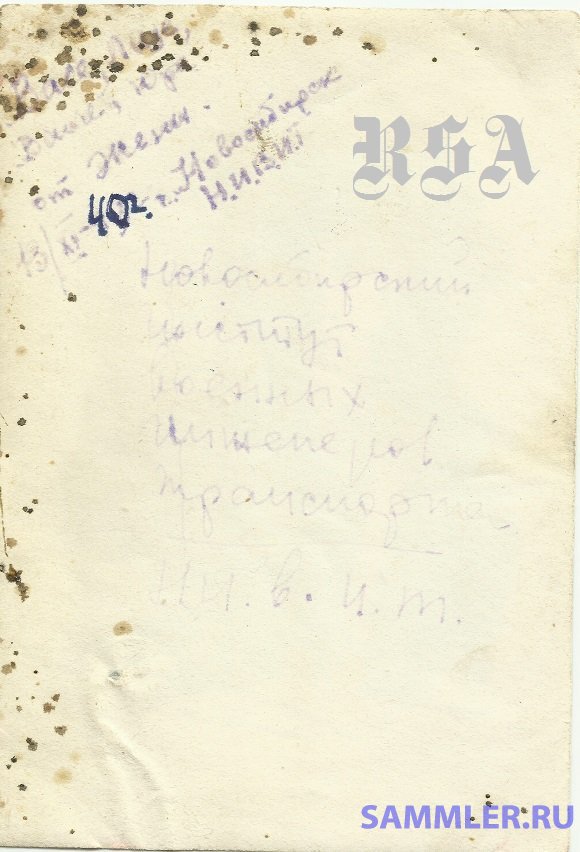 от Жени.
13/XI-40г. г. Новосибирск
Н.И.В.И.Т
RSA
Новосибирский
институт
Военных
Инженеров
Транспорта
в. и. т.
SAMMLER.RU